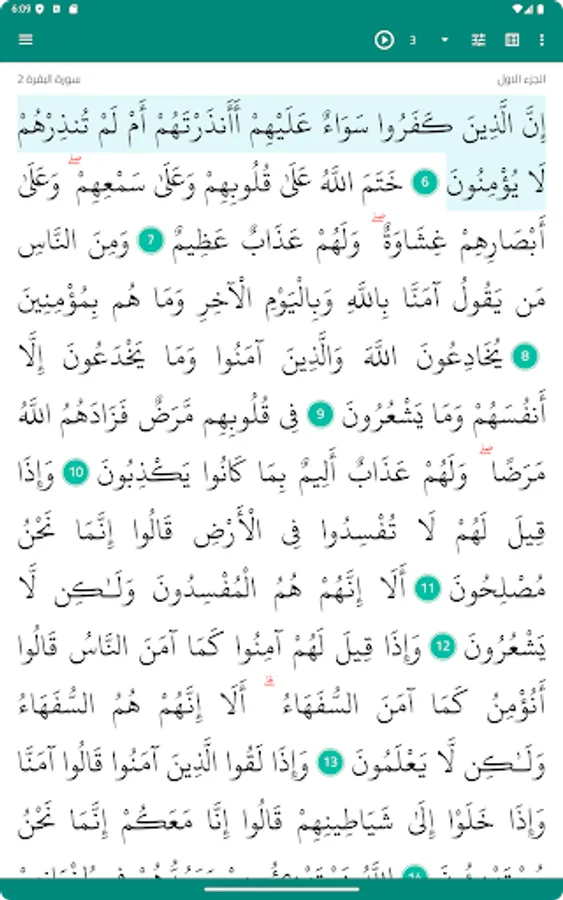 6:09
3
سورة البقرة 2
الجزء الاول
إِنَّ الَّذِينَ كَفَرُوا سَوَاءٌ عَلَيْهِمْ أَأَنذَرْتَهُمْ أَمْ لَمْ تُنذِرْهُمْ
لَا يُؤْمِنُونَ 6 خَتَمَ اللَّهُ عَلَىٰ قُلُوبِهِمْ وَعَلَىٰ سَمْعِهِمْ ۖ وَعَلَىٰ
أَبْصَارِهِمْ غِشَاوَةٌ ۖ وَلَهُمْ عَذَابٌ عَظِيمٌ 7 وَمِنَ النَّاسِ
مَن يَقُولُ آمَنَّا بِاللَّهِ وَبِالْيَوْمِ الْآخِرِ وَمَا هُم بِمُؤْمِنِينَ
8 يُخَادِعُونَ اللَّهَ وَالَّذِينَ آمَنُوا وَمَا يَخْدَعُونَ إِلَّا
أَنفُسَهُمْ وَمَا يَشْعُرُونَ 9 فِي قُلُوبِهِم مَّرَضٌ فَزَادَهُمُ اللَّهُ
مَرَضًا ۖ وَلَهُمْ عَذَابٌ أَلِيمٌ بِمَا كَانُوا يَكْذِبُونَ 10 وَإِذَا
قِيلَ لَهُمْ لَا تُفْسِدُوا فِي الْأَرْضِ قَالُوا إِنَّمَا نَحْنُ
مُصْلِحُونَ 11 أَلَا إِنَّهُمْ هُمُ الْمُفْسِدُونَ وَلَٰكِن لَّا
يَشْعُرُونَ 12 وَإِذَا قِيلَ لَهُمْ آمِنُوا كَمَا آمَنَ النَّاسُ قَالُوا
أَنُؤْمِنُ كَمَا آمَنَ السُّفَهَاءُ ۗ أَلَا إِنَّهُمْ هُمُ السُّفَهَاءُ
وَلَٰكِن لَّا يَعْلَمُونَ 13 وَإِذَا لَقُوا الَّذِينَ آمَنُوا قَالُوا آمَنَّا
وَإِذَا خَلَوْا إِلَىٰ شَيَاطِينِهِمْ قَالُوا إِنَّا مَعَكُمْ إِنَّمَا نَحْنُ